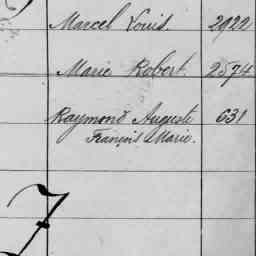 Marcel Louis. 2922
Marie Robert. 2574
Raymond Auguste 631
François Marie.